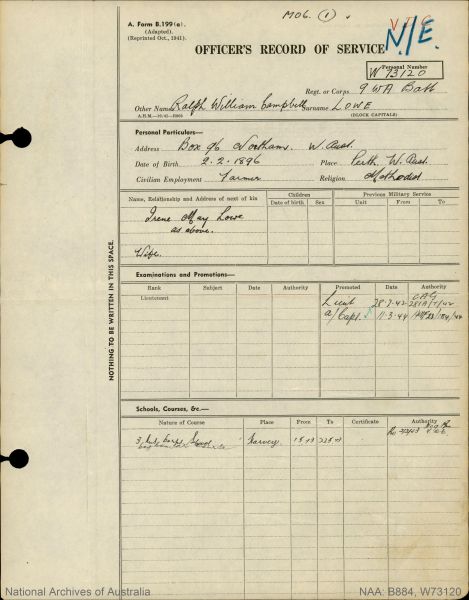 MOG. (1)
A. Form B.199 (a).
(Adapted).
(Reprinted Oct., 1941).
OFFICER'S RECORD OF SERVICE
N/E.
Personal Number
W 73120
Regt. or Corps. 9 WA Batt
Other Names Ralph William Campbell Surname LOWE
A.H.M.—10/41—8906 (BLOCK CAPITALS)
Personal Particulars—
Address Box 96 Northam. W. Aust.
Date of Birth 2.2.1896 Place Perth, W. Aust.
Civilian Employment Farmer Religion Methodist
Name, Relationship and Address of next of kin Children Previous Military Service
Date of birth Sex Unit From To
Irene May Lowe
as above.
Wife.
NOTHING TO BE WRITTEN IN THIS SPACE.
Examinations and Promotions—
Rank Subject Date Authority Promoted Date Authority
Lieutenant
Lieut 28-7-42
a/Capt. 11-3-44
Schools, Courses, &c.—
Nature of Course Place From To Certificate Authority
School Harvey
National Archives of Australia
NAA: B884, W73120